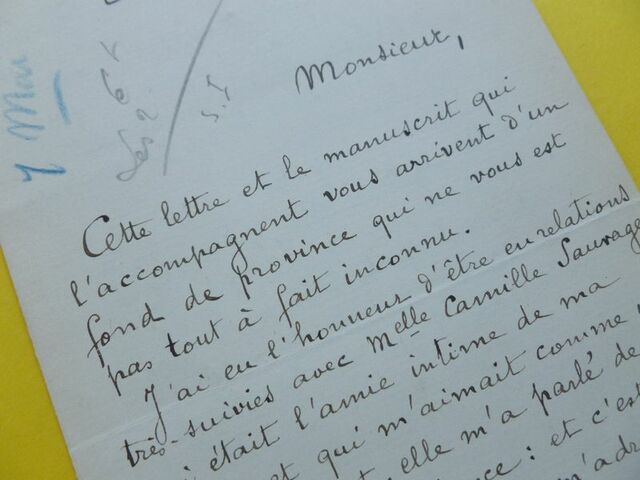 7 Mars
S.I
Monsieur,
Cette lettre et le manuscrit qui
l'accompagnent vous arrivent d'un
fond de province qui ne vous est
pas tout à fait inconnu.
J'ai eu l'honneur d'être en relations
très-suivies avec Melle Camille Sauvage
était l'amie intime de ma
et qui m'aimait comme
elle m'a parlé de
: et c'est
m'adr